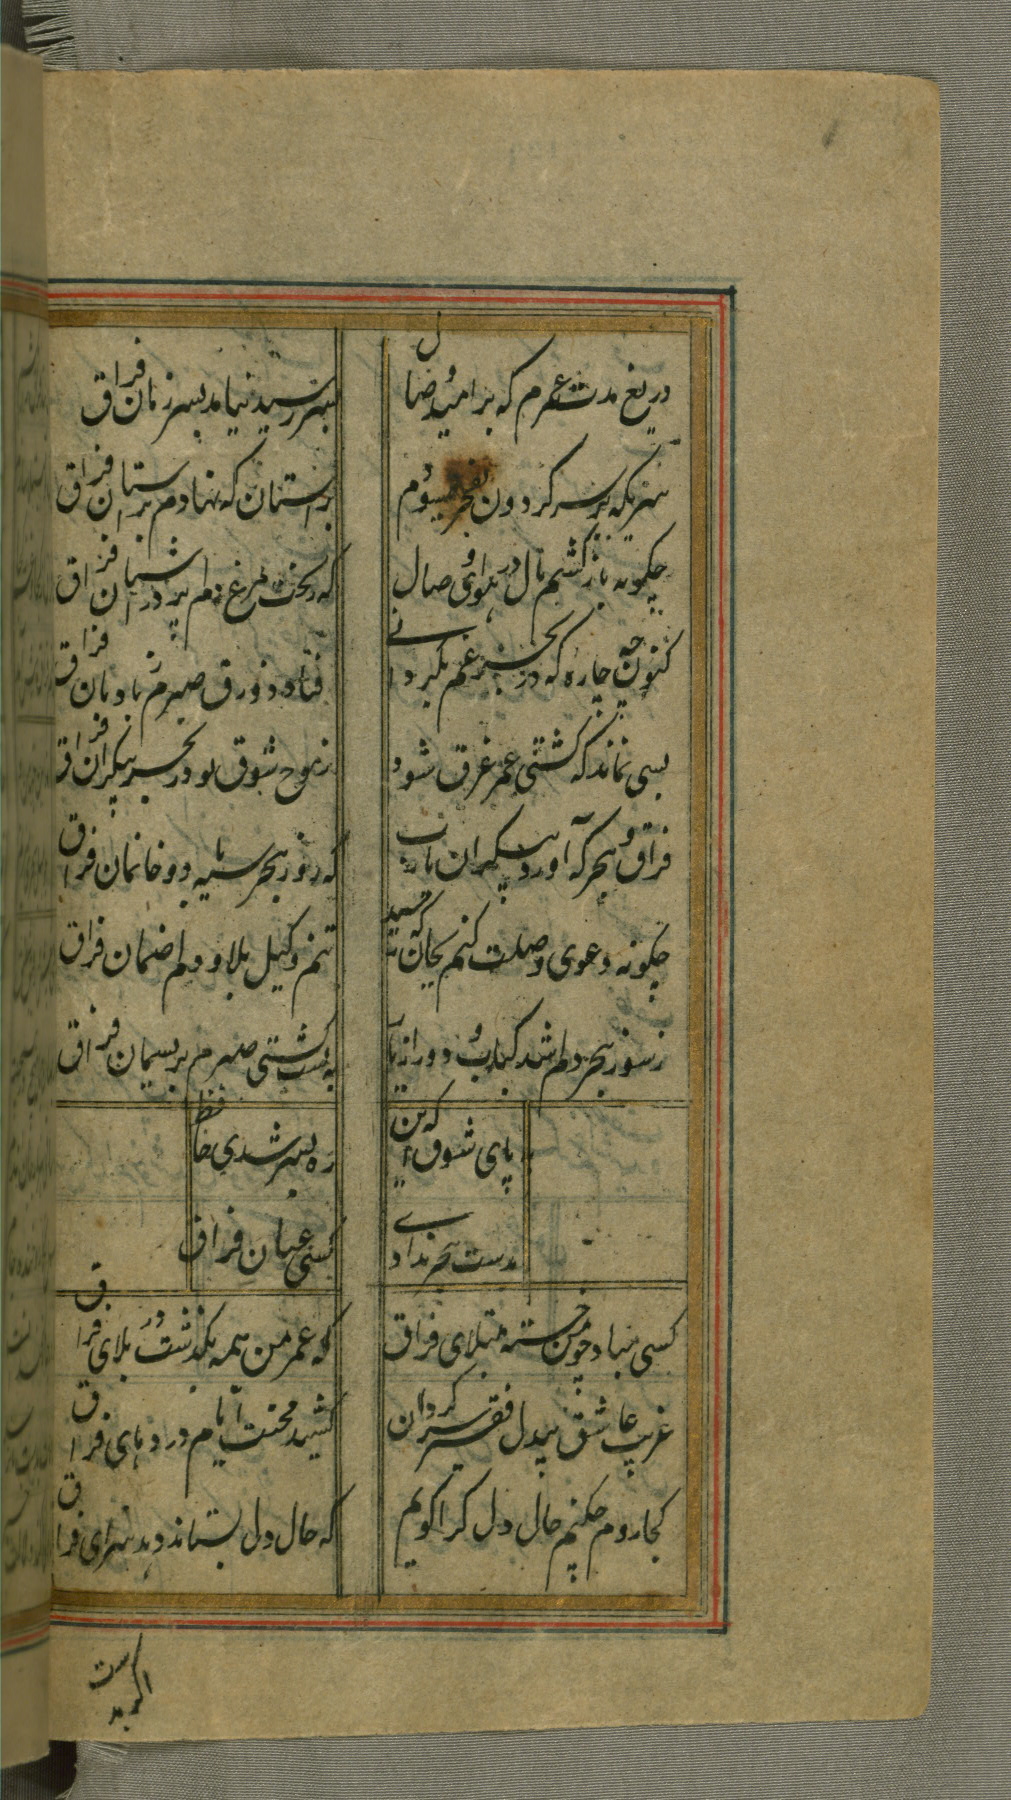 دریغ مدت عمرم که بر امید وصال
بسر رسید نیامد بسر زمان فراق
سریکه بر سر گردون بفخر میسودم
بر استان که نهادم بر استان فراق
چگونه باز کشم بال در هوای وصال
که ریخت مرغ دلم پر در اشیان فراق
کنون چه چاره که در بحر غم بگردابی
فتاد زورق صبرم ز بادبان فراق
بسی نماند که کشتی عمر غرق شود
ز موج شوق تو در بحر بیکران فراق
فراق و هجر که آورد
که روز هجر سیه باد و خانمان فراق
چگونه دعوی وصلت کنم بجان که شد
تنم وکیل بلا و دلم ضمان فراق
ز سوز هجر دلم شد کباب و دور از یار
کشتی صبرم بریسمان فراق
بپای شوق که این
ره بسر شدی حافظ
بدست هجر ندادی
کسی عنان فراق
کسی مباد چو من خسته مبتلای فراق
که عمر من همه بگذشت در بلای فراق
غریب عاشق بیدل فقیر سرگردان
کشیده محنت ایام درد های فراق
کجا روم چکنم حال دل کرا گویم
که حال دل بستاند دهد سزای فراق
اگر بدست